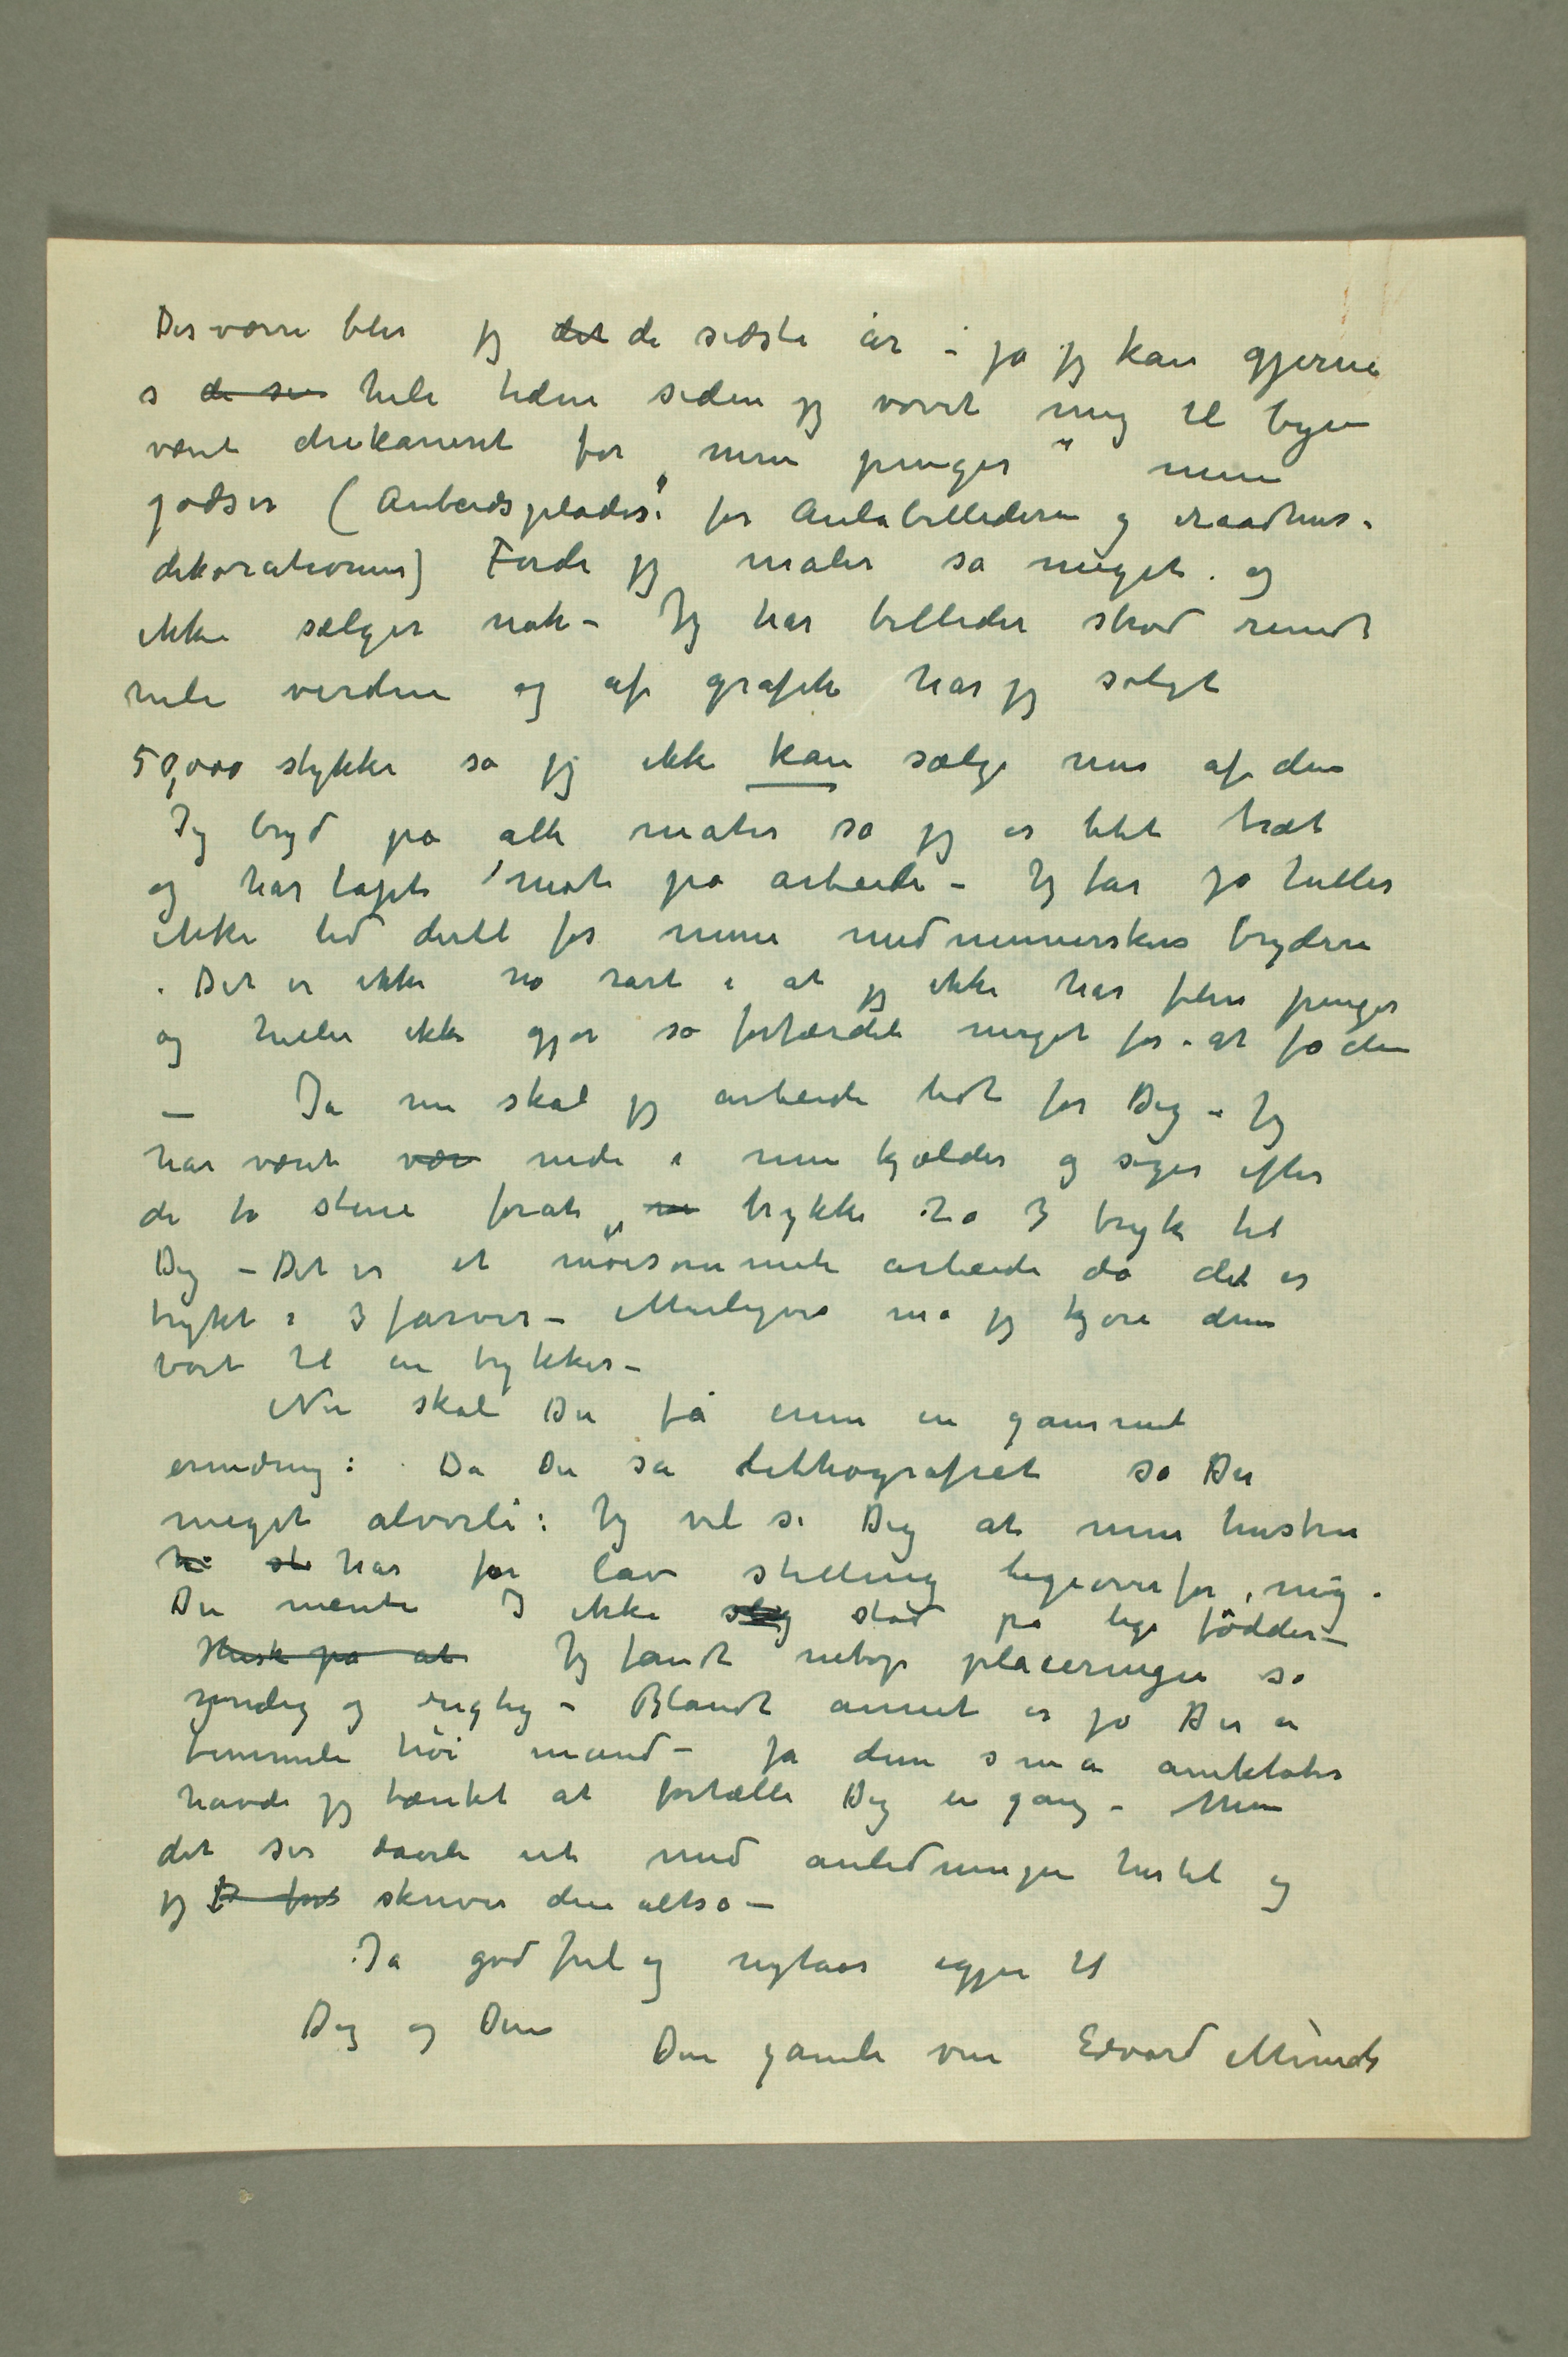 Desværre blir jeg det de sidste år – ja jeg kan gjerne
s de sen hele tiden siden jeg vovet mig til byen
været chikaneret for „mine penger“ mine
godser (Arbeidspladser for Aulabillederne og raadhus-
dekorationen) Fordi jeg maler så meget og
ikke sælger nok – Jeg har billeder strød rundt
hele verden og af grafik har jeg solgt
50,000 stykker så jeg ikke kan sælge mer af den
Jeg bryd på alle måter så jeg er blet træt
og har tapt mot på arbeide – Jeg får jo heller
ikke tid dertil for mine medmenneskers bryderi
. Det er ikke no rart i at jeg ikke har flere penger
og heller ikke gjør så forfærdeli meget for at få dem
– Ja nu skal jeg arbeide lidt for Dig – Jeg
har været vær nede i min kjælder og søger efter
de to stene forat trykke 2 a 3 tryk til
Dig – Det er et møisommeli arbeide da det er
trykt i 3 farver – Muligvis må jeg kjøre dem
bort til en trykker –
Nu skal Du få enu en gammel
erindring: Da Du så lithografiet sa Du
meget alvorli: Jeg vil si Dig at min hustru
har for lav stilling ligeoverfor mig.
Du mente I ikke slig stod på lige fødder –
Husk på at Jeg fandt netop placeringen så
yndig og rigtig – Blandt annet er jo Du en
temmeli høi mand – Ja den små anekdoter
havde jeg tænkt at fortælle Dig en gang – Men
det ser daarli ut med anledningen hertil og
jeg skriver den altså –
Ja god Jul og nytaar igjen til
Dig og Dine
Din gamle ven Edvard Munch